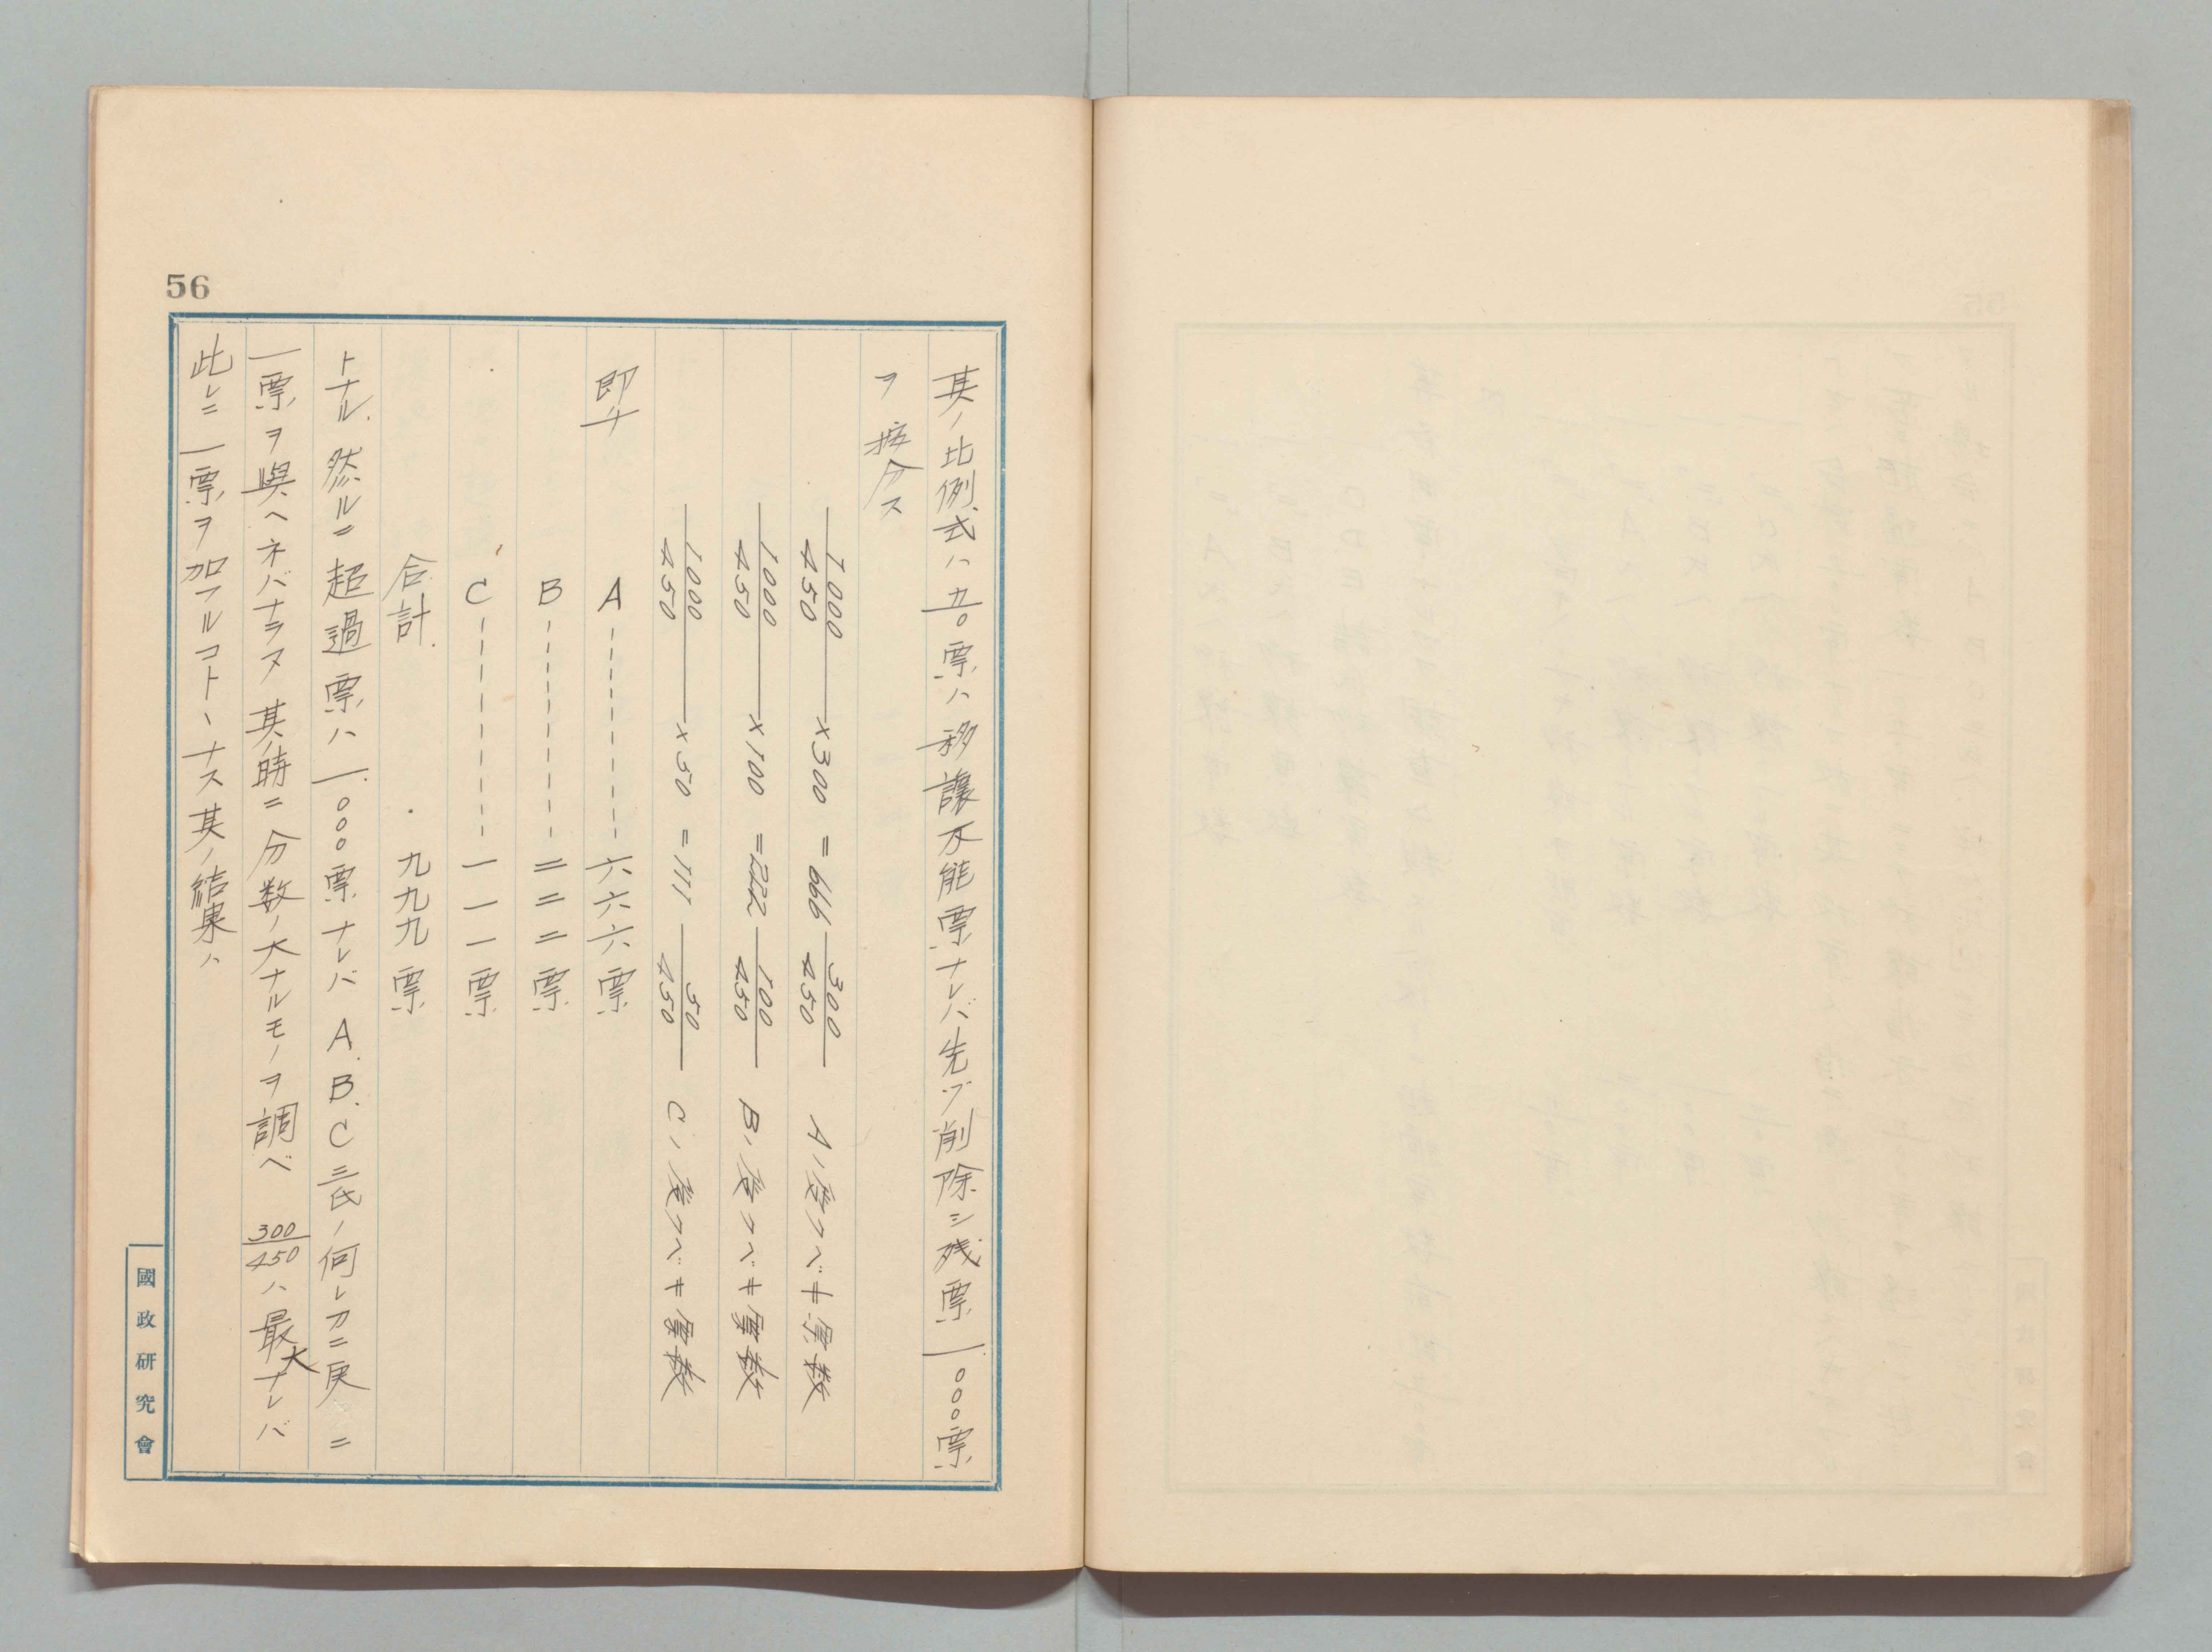 56
其ノ比例式ハ五〇票ハ移譲不能票ナレバ先ヅ削除シ残票一〇〇〇票
ヲ按分ス
1000/450 ×300 =666 300/450 Aノ受クベキ票数
1000/450 ×100 =222 100/450 Bノ受クベキ票数
1000/450 ×50 =111 50/450 Cノ受クベキ票数
即チ A----------六六六票
B----------二二二票
C----------一一一票
合計 九九九票
トナル.然ルニ超過票ハ一.〇〇〇票ナレバ A.B.C三氏ノ何レカニ更ニ
一票ヲ與ヘネバナラヌ其ノ時ニ分数ノ大ナルモノヲ調べ 300/450 ハ最大ナレバ
此レニ一票ヲ加フルコトヽナス其ノ結果ハ
國政研究會